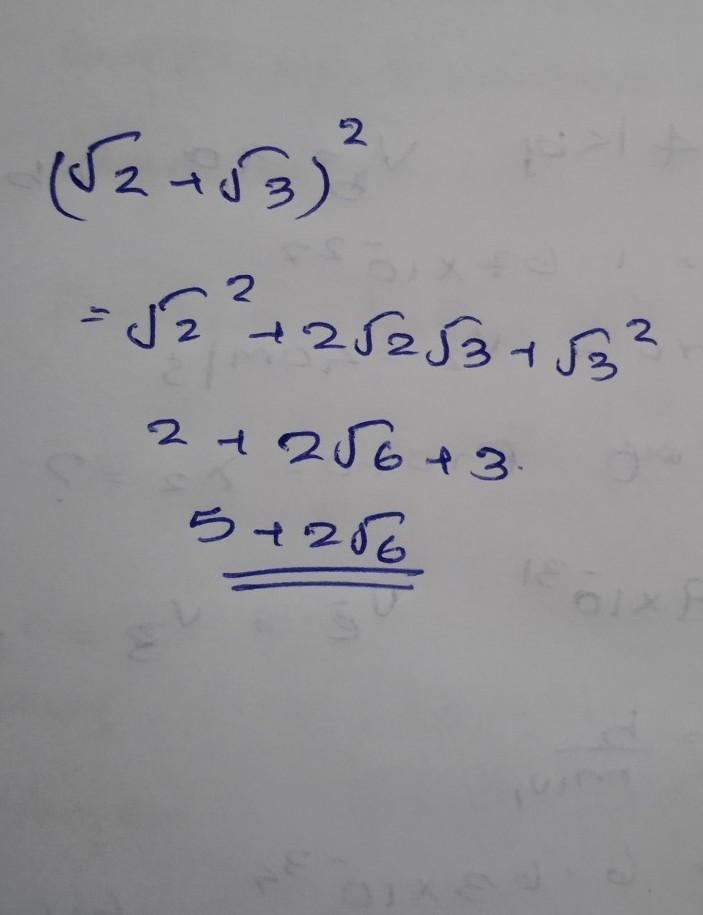 (√2 + √3)²
= √2² + 2√2√3 + √3²
2 + 2√6 + 3.
5 + 2√6